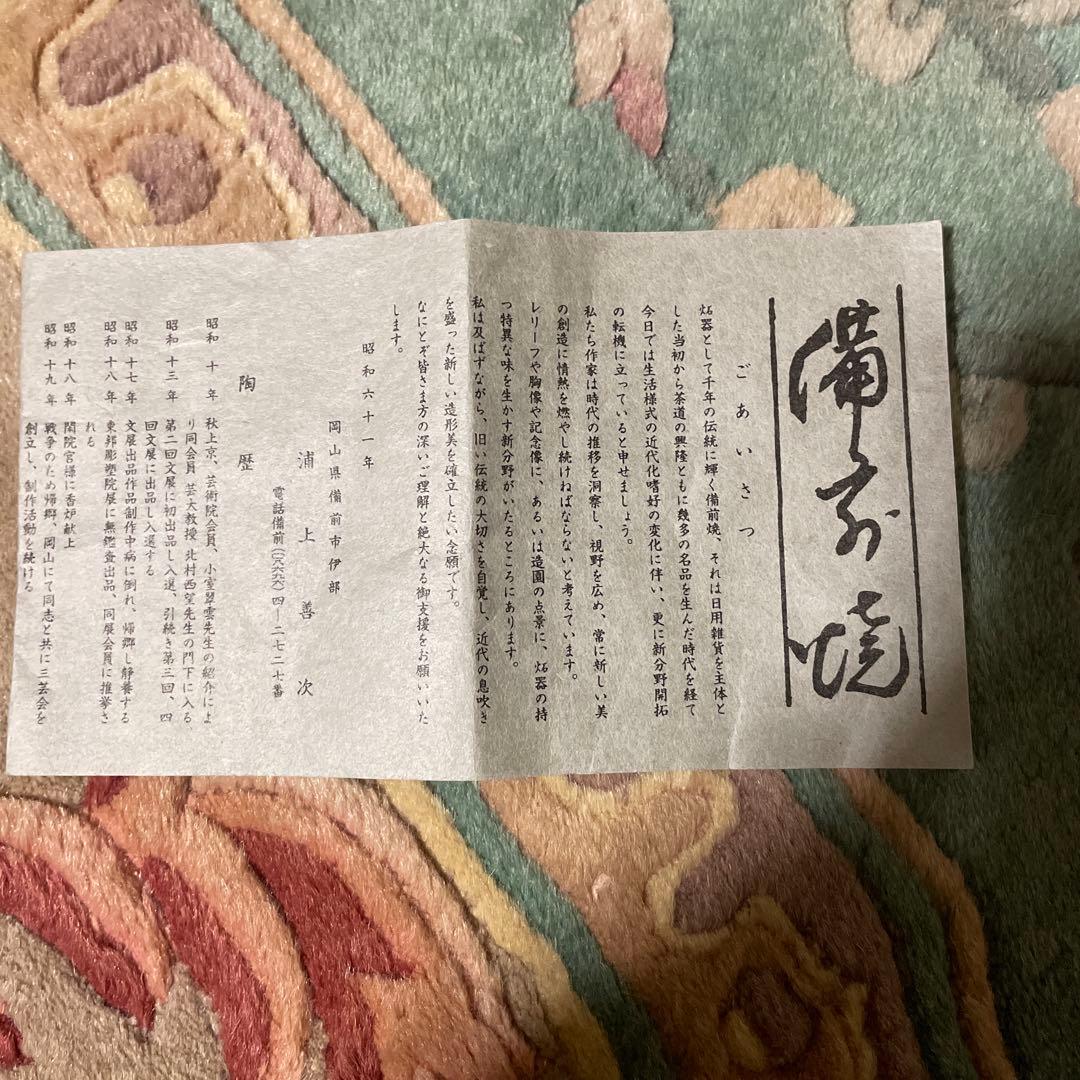 備前焼
ごあいさつ
炻器として千年の伝統に輝く備前焼、それは日用雑貨を主体と
した当初から茶道の興隆とともに幾多の名品を生んだ時代を経て
今日では生活様式の近代化嗜好の変化に伴い、更に新分野開拓
の転機に立っていると申せましょう。
私たち作家は時代の推移を洞察し、視野を広め、常に新しい美
の創造に情熱を燃やし続けねばならないと考えています。
レリーフや胸像や記念像に、あるいは造園の点景に、炻器の持
つ特異な味を生かす新分野がいたるところにあります。
私は及ばずながら、旧い伝統の大切さを自覚し、近代の息吹き
を盛った新しい造形美を確立したい念願です。
なにとぞ皆さま方の深いご理解と絶大なる御支援をお願いいた
します。
昭和六十一年
岡山県備前市伊部
浦上善次
電話備前(〇八六九六)四-二七二七番
陶歴
昭和十年 秋上京、芸術院会員、小室翠雲先生の紹介によ
り同会員 芸大教授 北村西望先生の門下に入る
昭和十三年 第二回文展に初出品し入選、引続き第三回、四
回文展に出品し入選する
昭和十七年 文展出品作品制作中病に倒れ、帰郷し静養する
昭和十八年 東邦彫塑院展に無鑑査出品、同展会員に推挙さ
れる
昭和十八年 閑院宮様に香炉献上
昭和十九年 戦争のため帰郷、岡山にて同志と共に三芸会を
創立し、制作活動を続ける